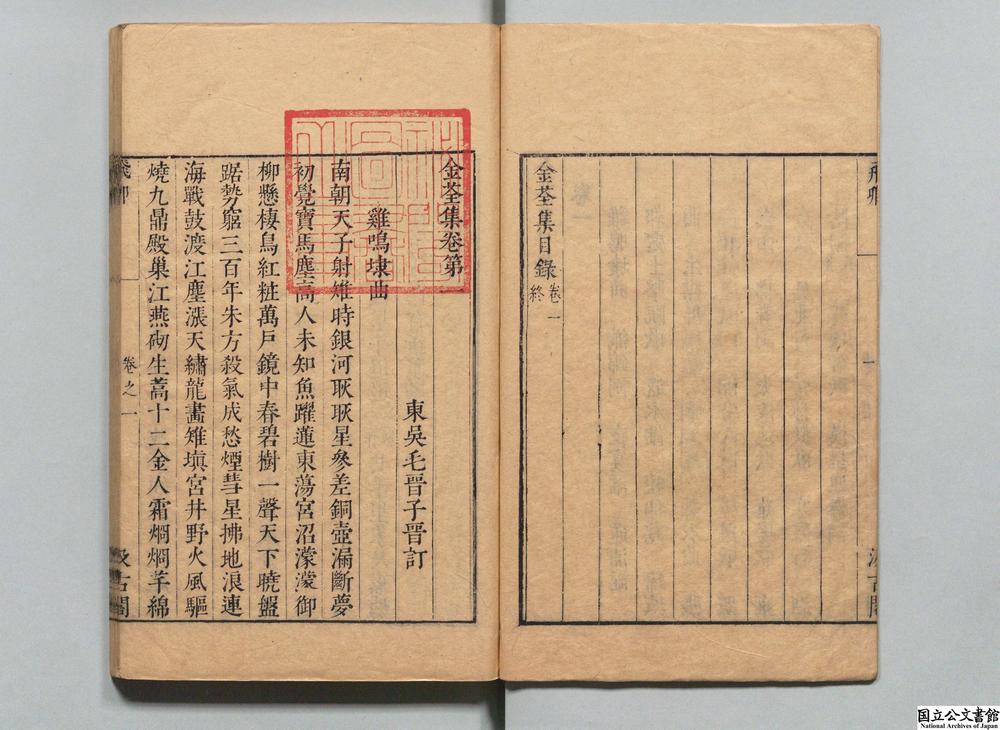 金荃集目錄卷一終
金荃集卷第
東吳毛晉子晉訂
雞鳴埭曲
南朝天子射雉時銀河耿耿星參差銅壺漏斷夢
初覺寶馬塵高人未知魚躍蓮東蕩宮沼濛濛御
柳懸棲鳥紅粧萬戶鏡中春碧樹一聲天下曉盤
踞勢窮三百年朱方殺氣成愁煙彗星拂地浪連
海戰鼓渡江塵漲天繡龍畫雉塡宮井野火風驅
燒九鼎殿巢江燕砌生蒿十二金人霜焵焵芊綿
飛卿
卷之一
汲古閣
国立公文書館
National Archives of Japan